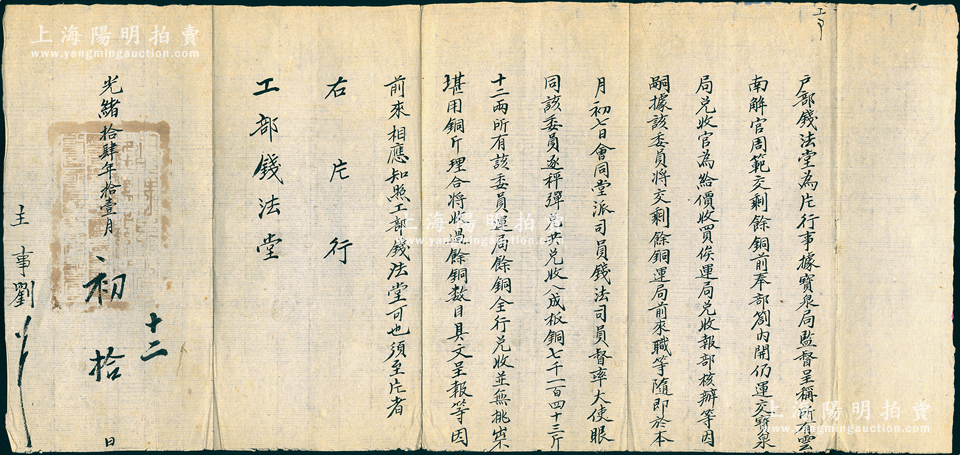 戶部錢法堂為片行事據寶泉局監督呈稱所有雲
南解官周範交剩餘銅前奉部劄內開仍運交寶泉
局兌收官為給價收買俟運局兌收報部核辦等因
嗣據該委員將交剩餘銅運局前來職等隨即於本
月初七日會同堂派司員錢法司員督率大使眼
同該委員逐秤彈兌共兌收八成板銅七千一百四十三斤
十二兩所有該委員運局餘銅全行兌收並無挑
堪用銅斤理合將收過餘銅數目具文呈報等因
前來相應知照工部錢法堂可也須至片者
右片行
工部錢法堂
光緒拾肆年拾壹月初拾日
十二
主事劉
上海陽明拍賣
www.yangmingauction.com
上海陽明拍賣
www.yangmingauction.com
上海陽明拍賣
www.yangmingauction.com